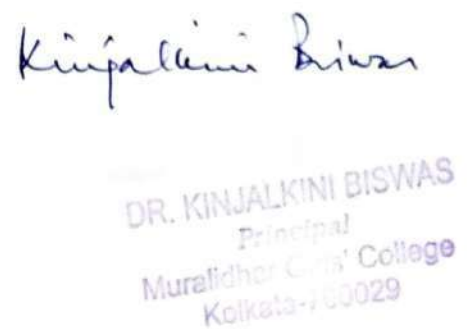 Kinjalkini Biswas
DR. KINJALKINI BISWAS
Principal
Muralidhar Girls' College
Kolkata-700029